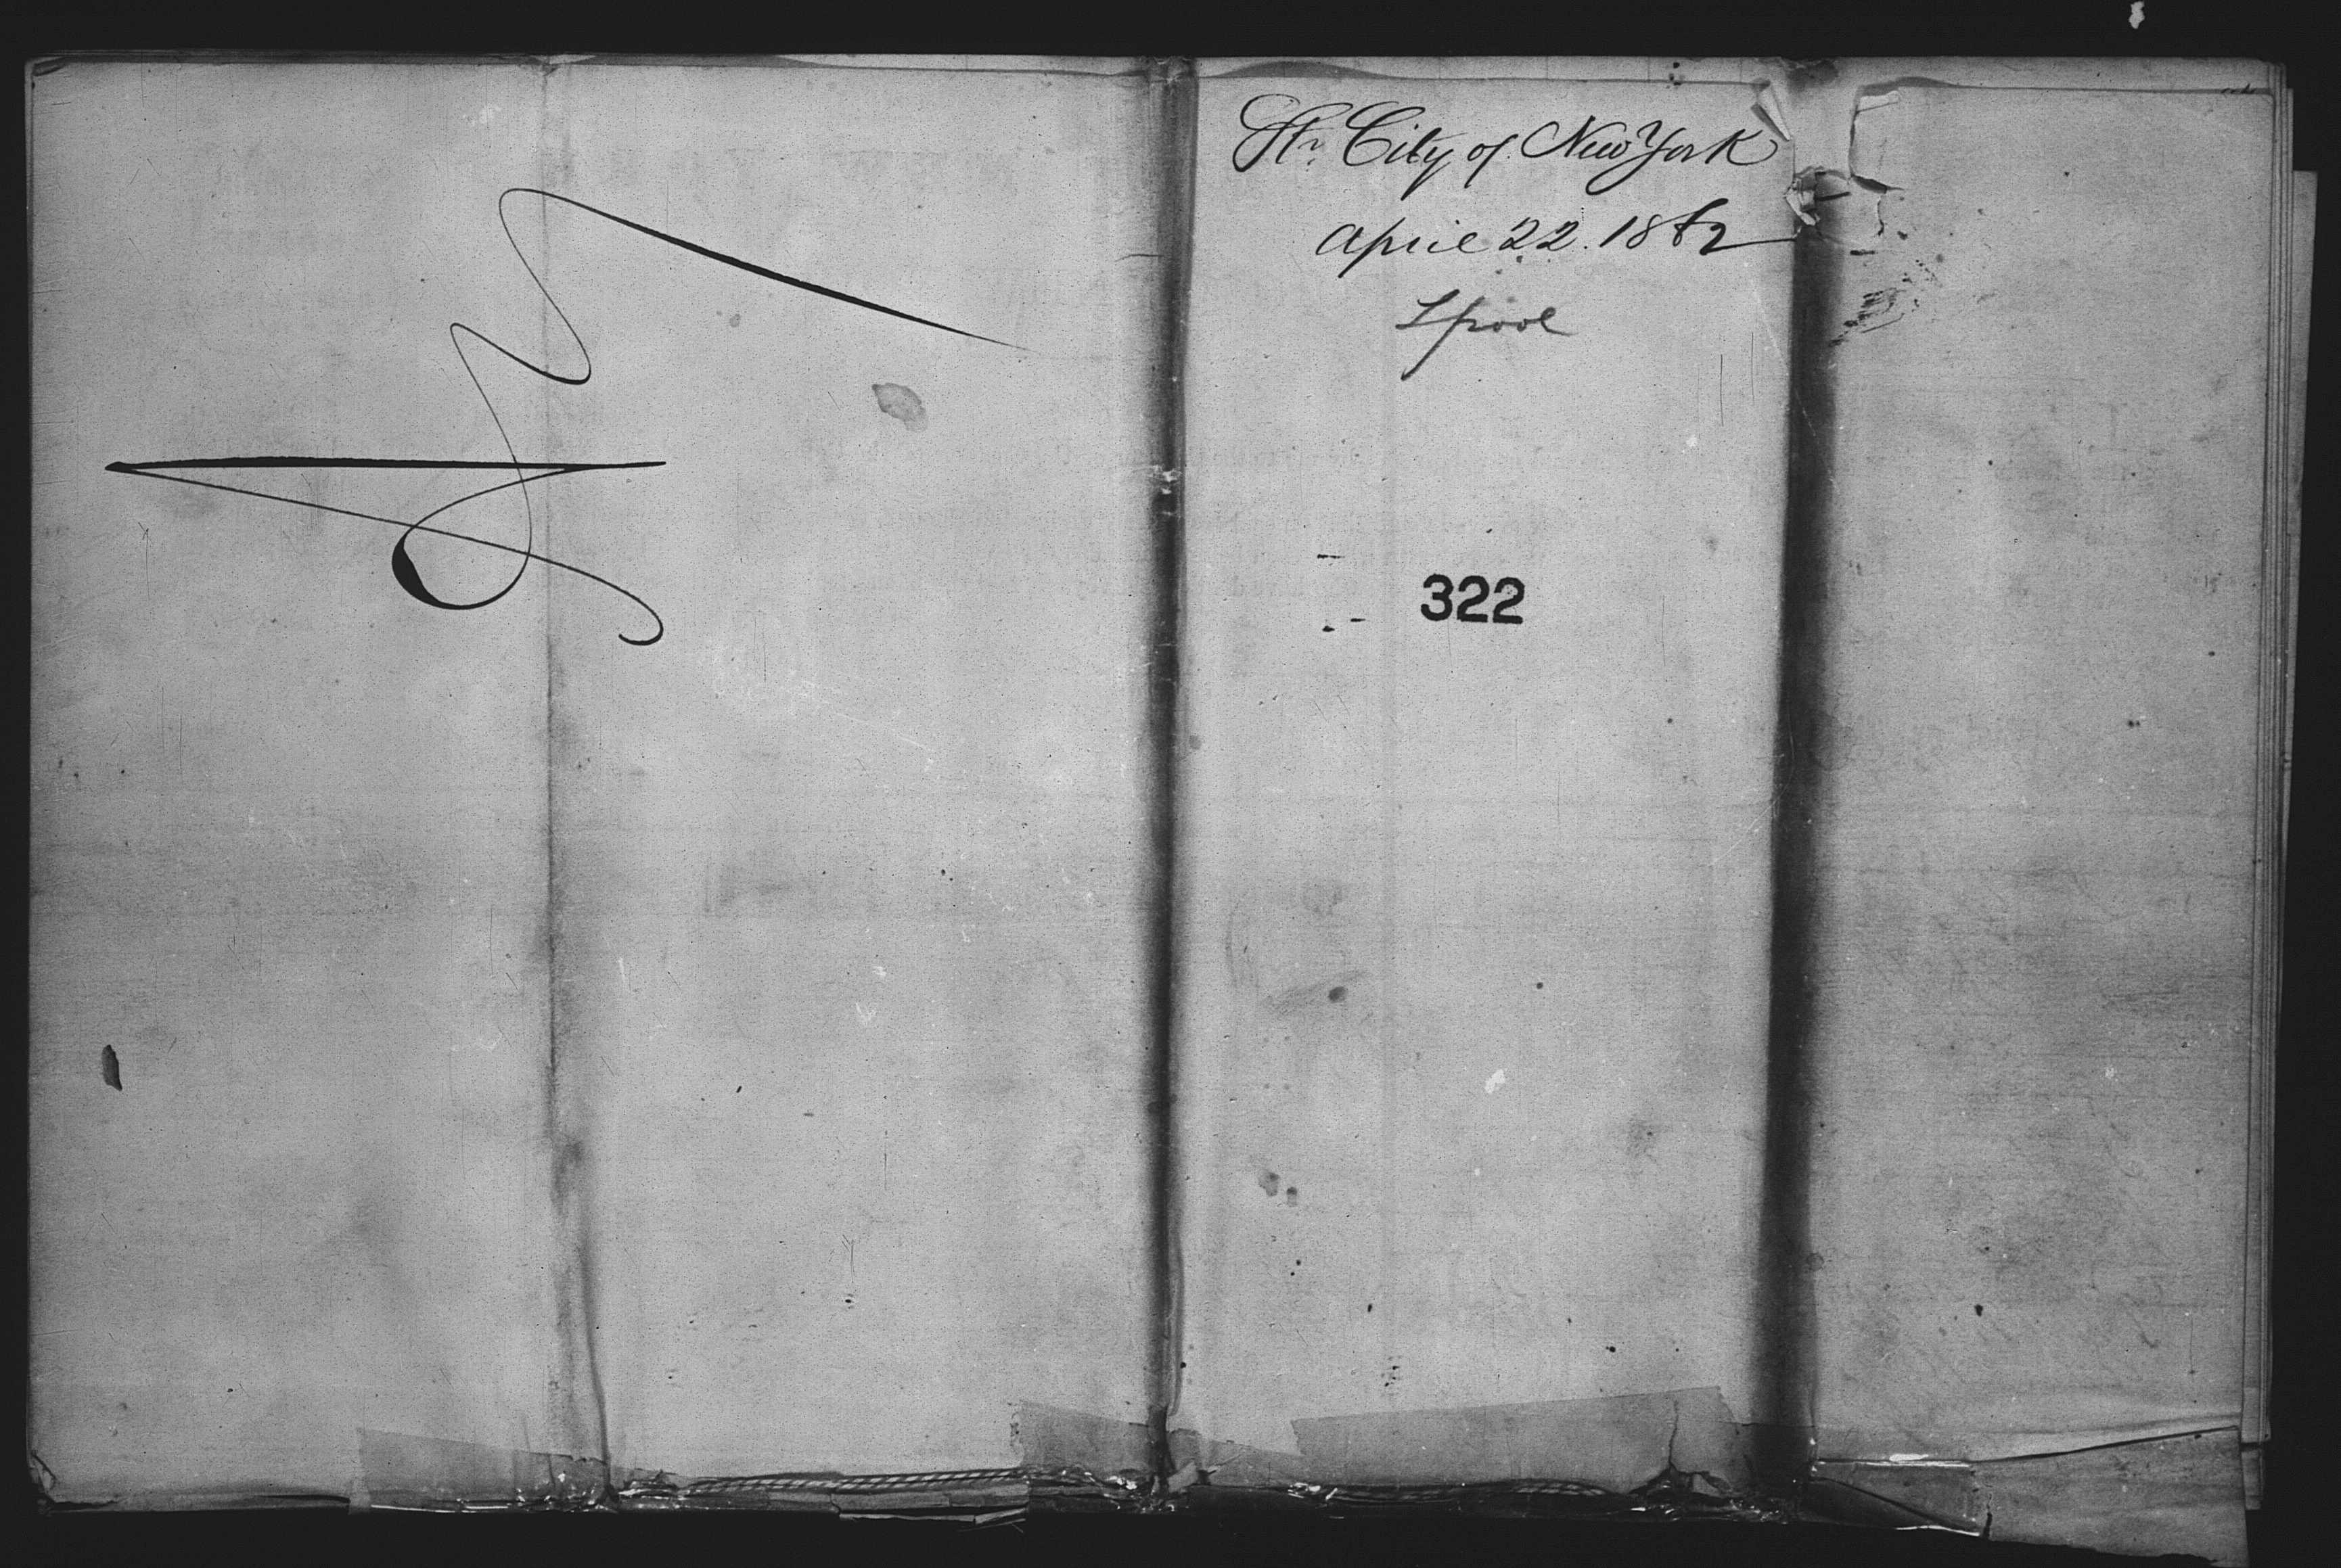 Str. City of New York
April 22. 1862
Lpool
322